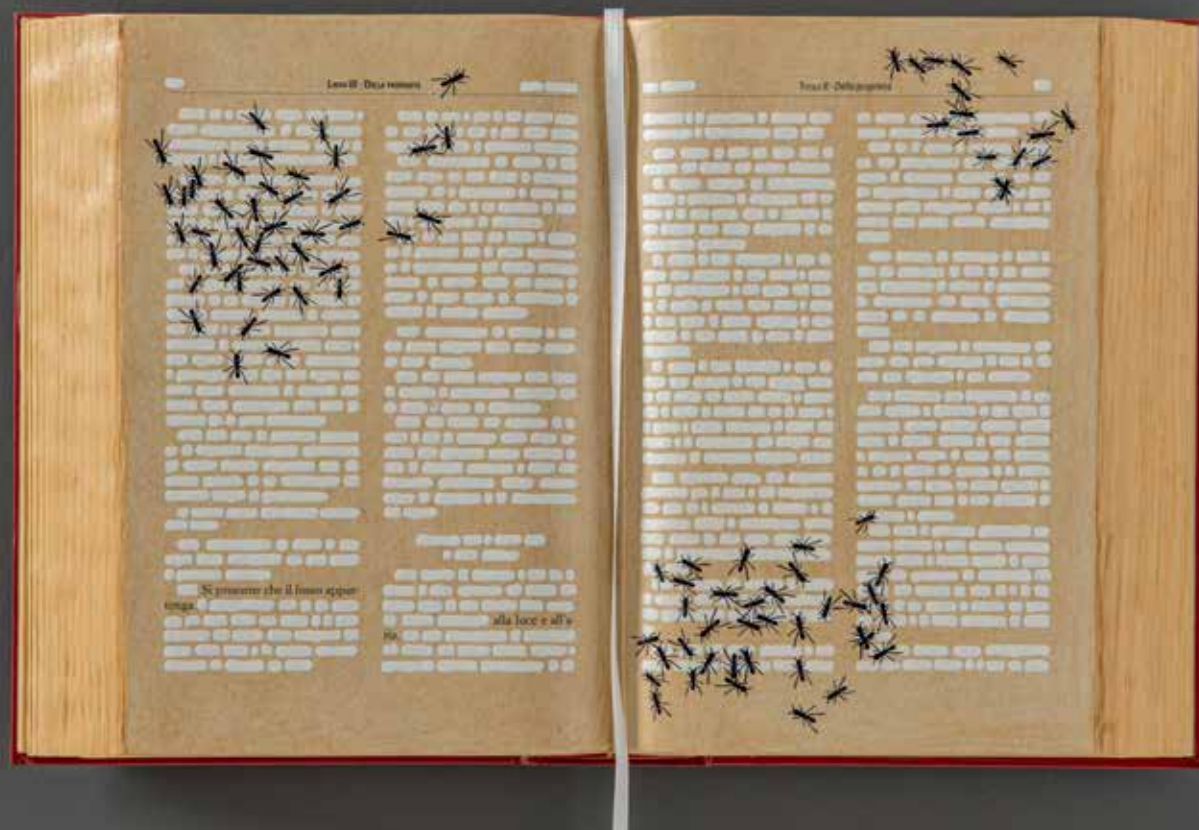 Libro III - Della proprietà
Titolo II - Della proprietà
Si presume che il fosso appar-
tenga
alla luce e all'a
ria